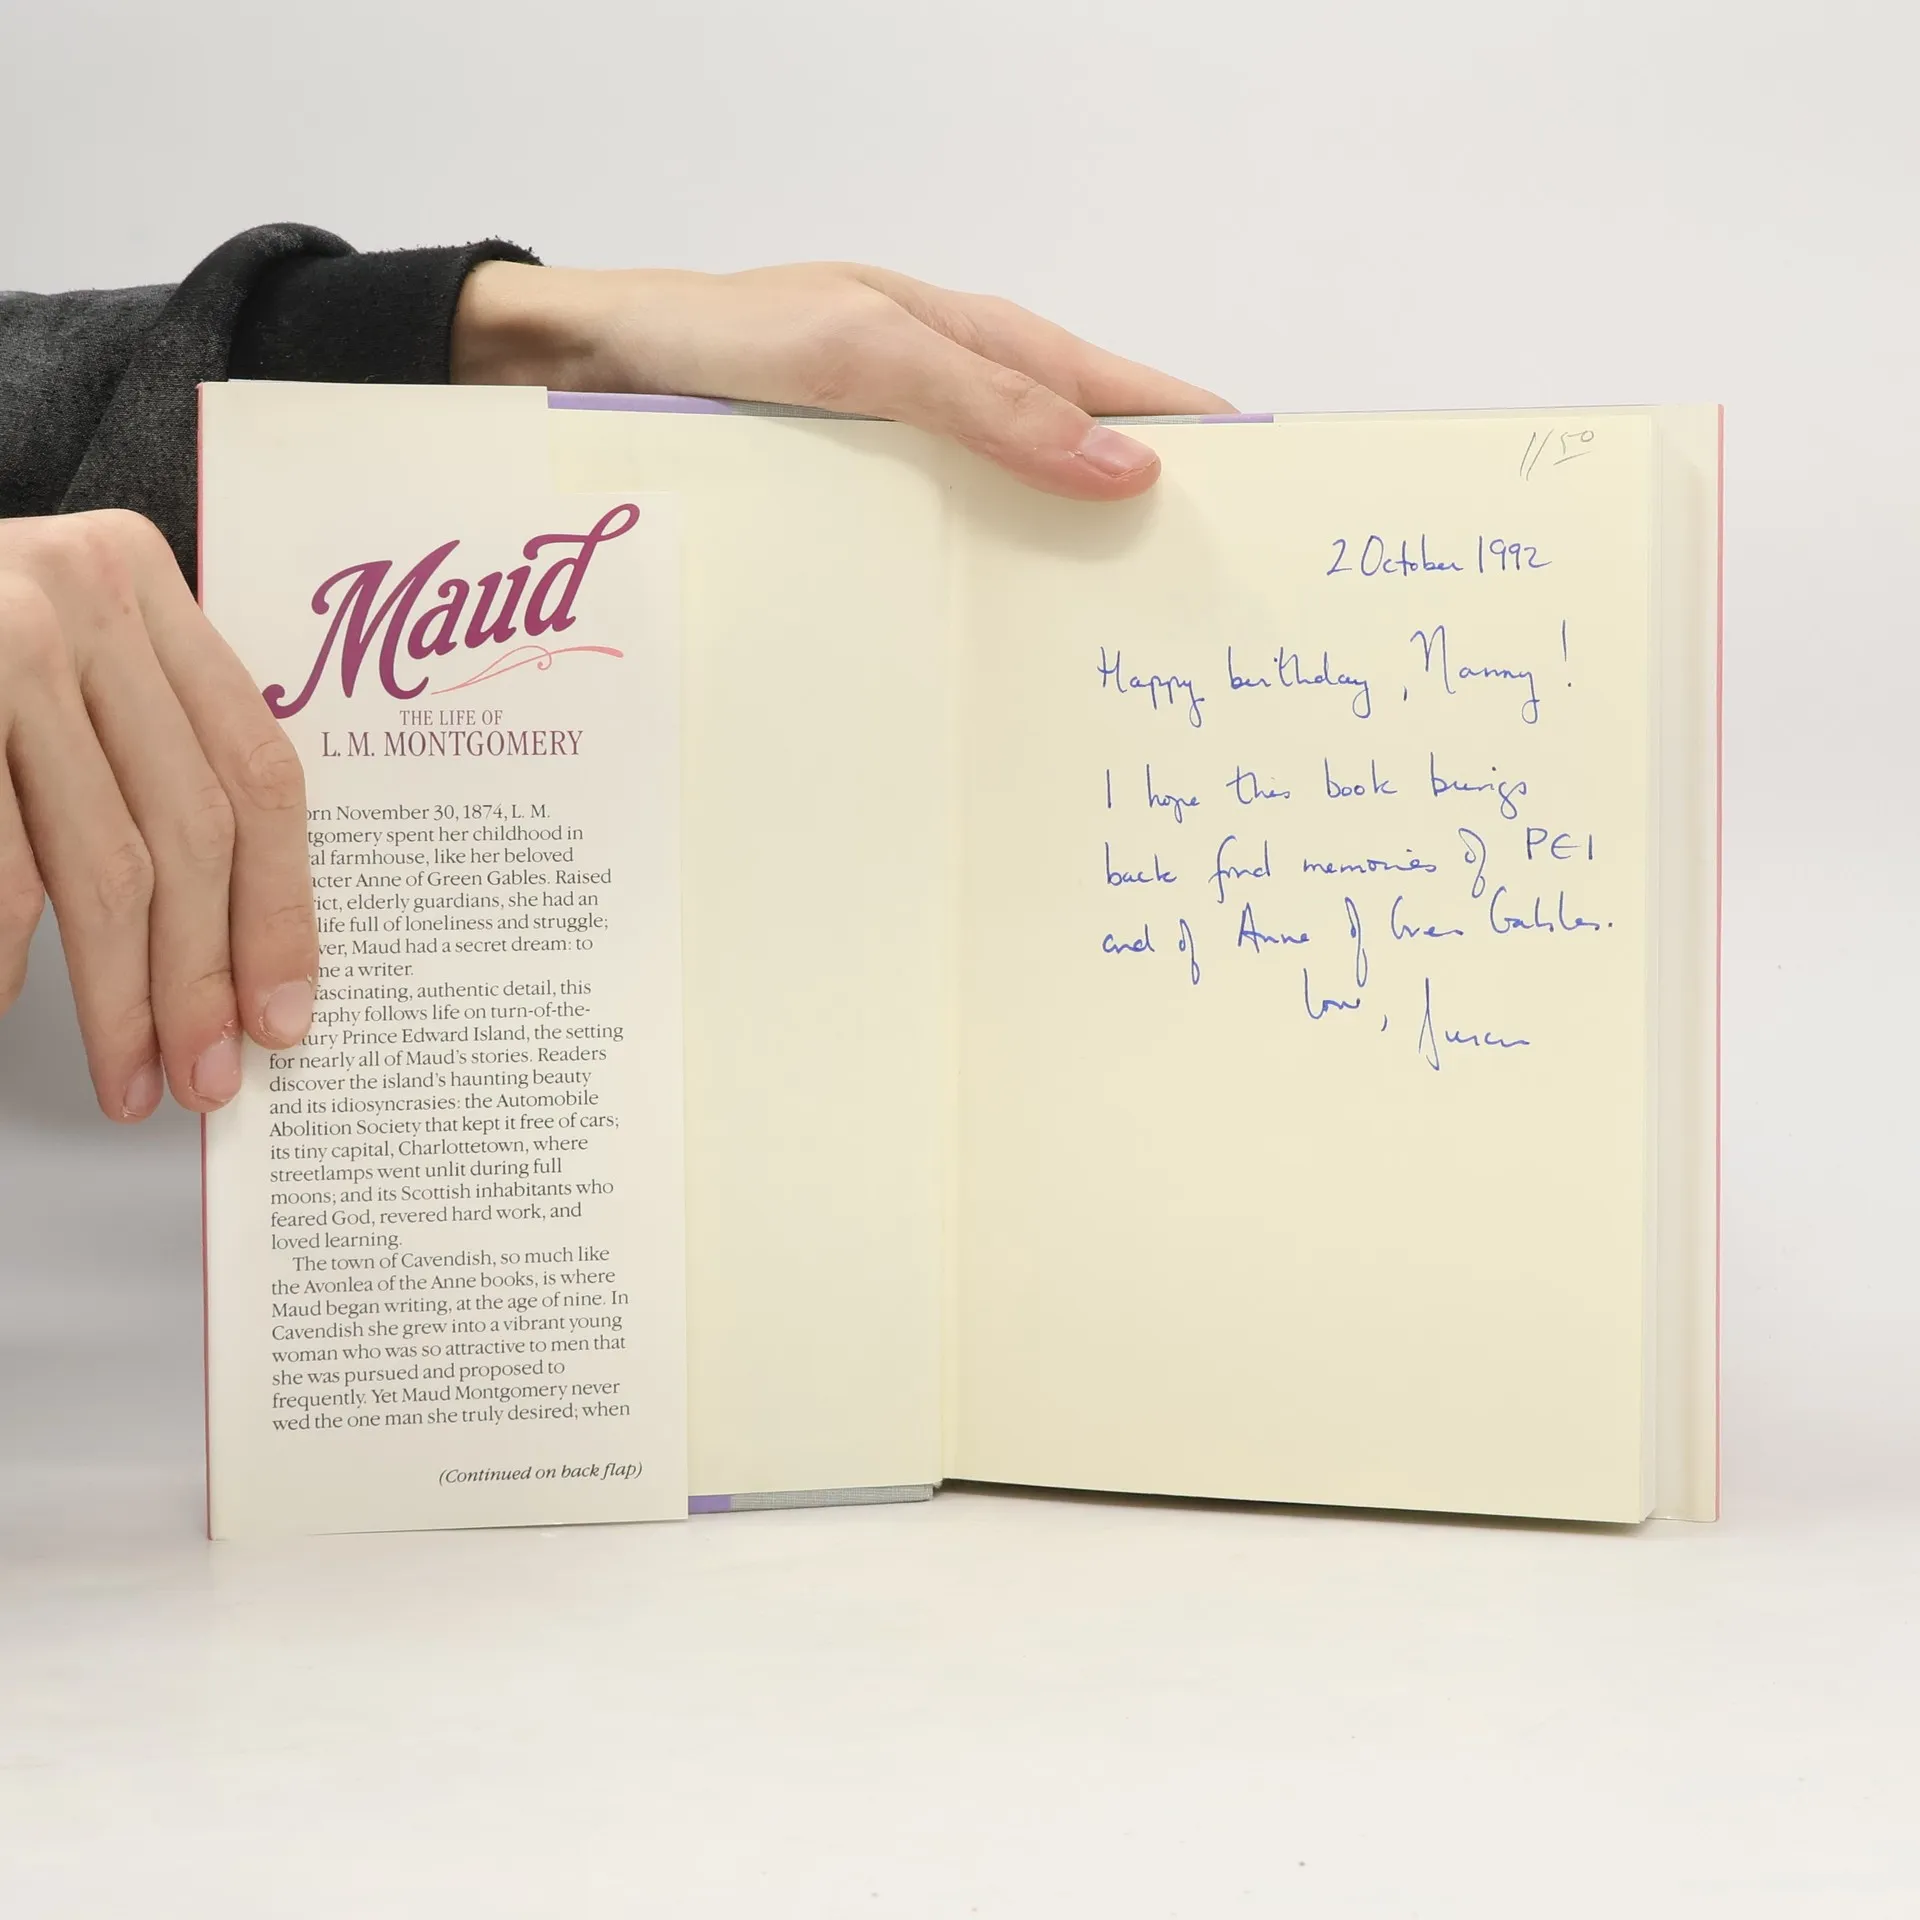 Maud
THE LIFE OF
L. M. MONTGOMERY
orn November 30, 1874, L. M.
tgomery spent her childhood in
al farmhouse, like her beloved
acter Anne of Green Gables. Raised
rict, elderly guardians, she had an
life full of loneliness and struggle;
ver, Maud had a secret dream: to
me a writer.
fascinating, authentic detail, this
raphy follows life on turn-of-the-
tury Prince Edward Island, the setting
for nearly all of Maud's stories. Readers
discover the island's haunting beauty
and its idiosyncrasies: the Automobile
Abolition Society that kept it free of cars;
its tiny capital, Charlottetown, where
streetlamps went unlit during full
moons; and its Scottish inhabitants who
feared God, revered hard work, and
loved learning.
The town of Cavendish, so much like
the Avonlea of the Anne books, is where
Maud began writing, at the age of nine. In
Cavendish she grew into a vibrant young
woman who was so attractive to men that
she was pursued and proposed to
frequently. Yet Maud Montgomery never
wed the one man she truly desired; when
(Continued on back flap)
11 50
2 October 1992
Happy birthday, Nanny!
I hope this book brings
back fond memories of PEI
and of Anne of Green Gables.
Love, Susan